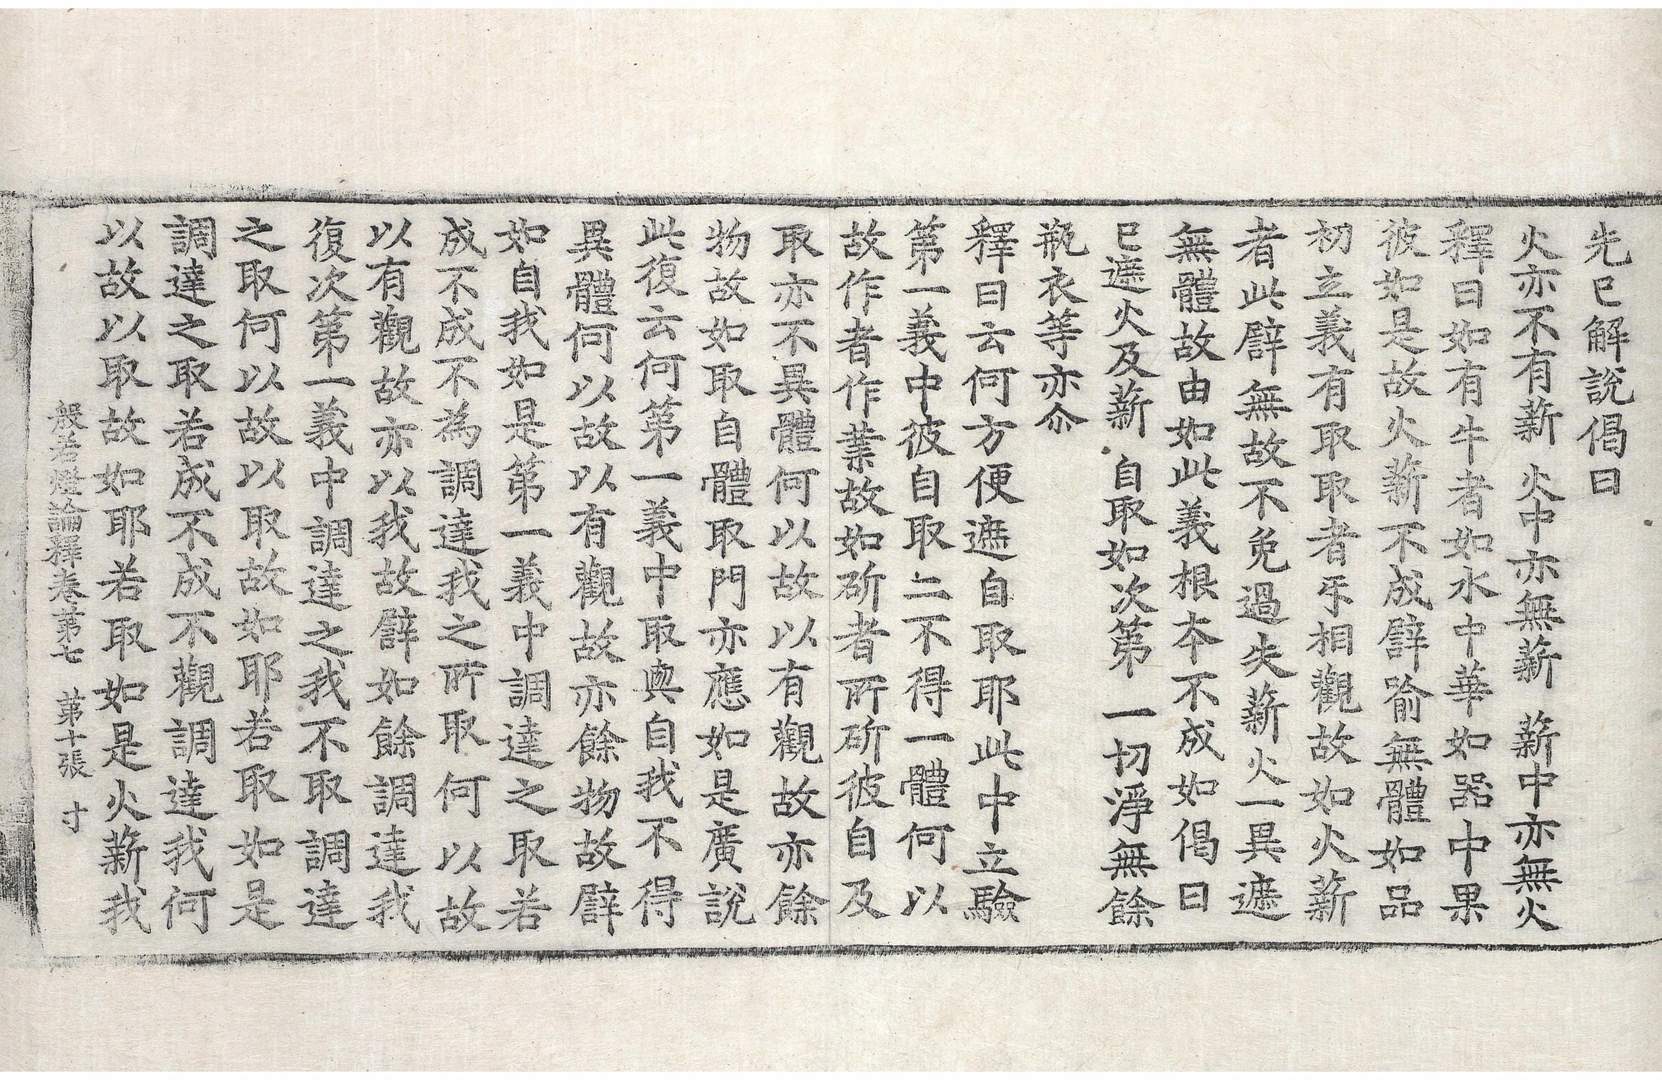 先已解說偈曰
火亦不有薪　火中亦無薪　薪中亦無火
釋曰如有牛者如水中華如器中果
彼如是故火薪不成譬喻無體如品
初立義有取取者乎相觀故如火薪
者此譬無故不免過失薪火一異遮
無體故由如此義根本不成如偈曰
已遮火及薪　自取如次第　一切淨無餘
瓶衣等亦尒
釋曰云何方便遮自取耶此中立驗
第一義中彼自取二不得一體何以
故作者作業故如斫者所斫彼自及
取亦不異體何以故以有觀故亦餘
物故如取自體取門亦應如是廣說
此復云何第一義中取與自我不得
異體何以故以有觀故亦餘物故譬
如自我如是第一義中調達之取若
成不成不為調達我之所取何以故
以有觀故亦以我故譬如餘調達我
復次第一義中調達之我不取調達
之取何以故以取故如耶若取如是
調達之取若成不成不觀調達我何
以故以取故如耶若取如是火薪我
般若燈論釋卷第七　第十張　寸